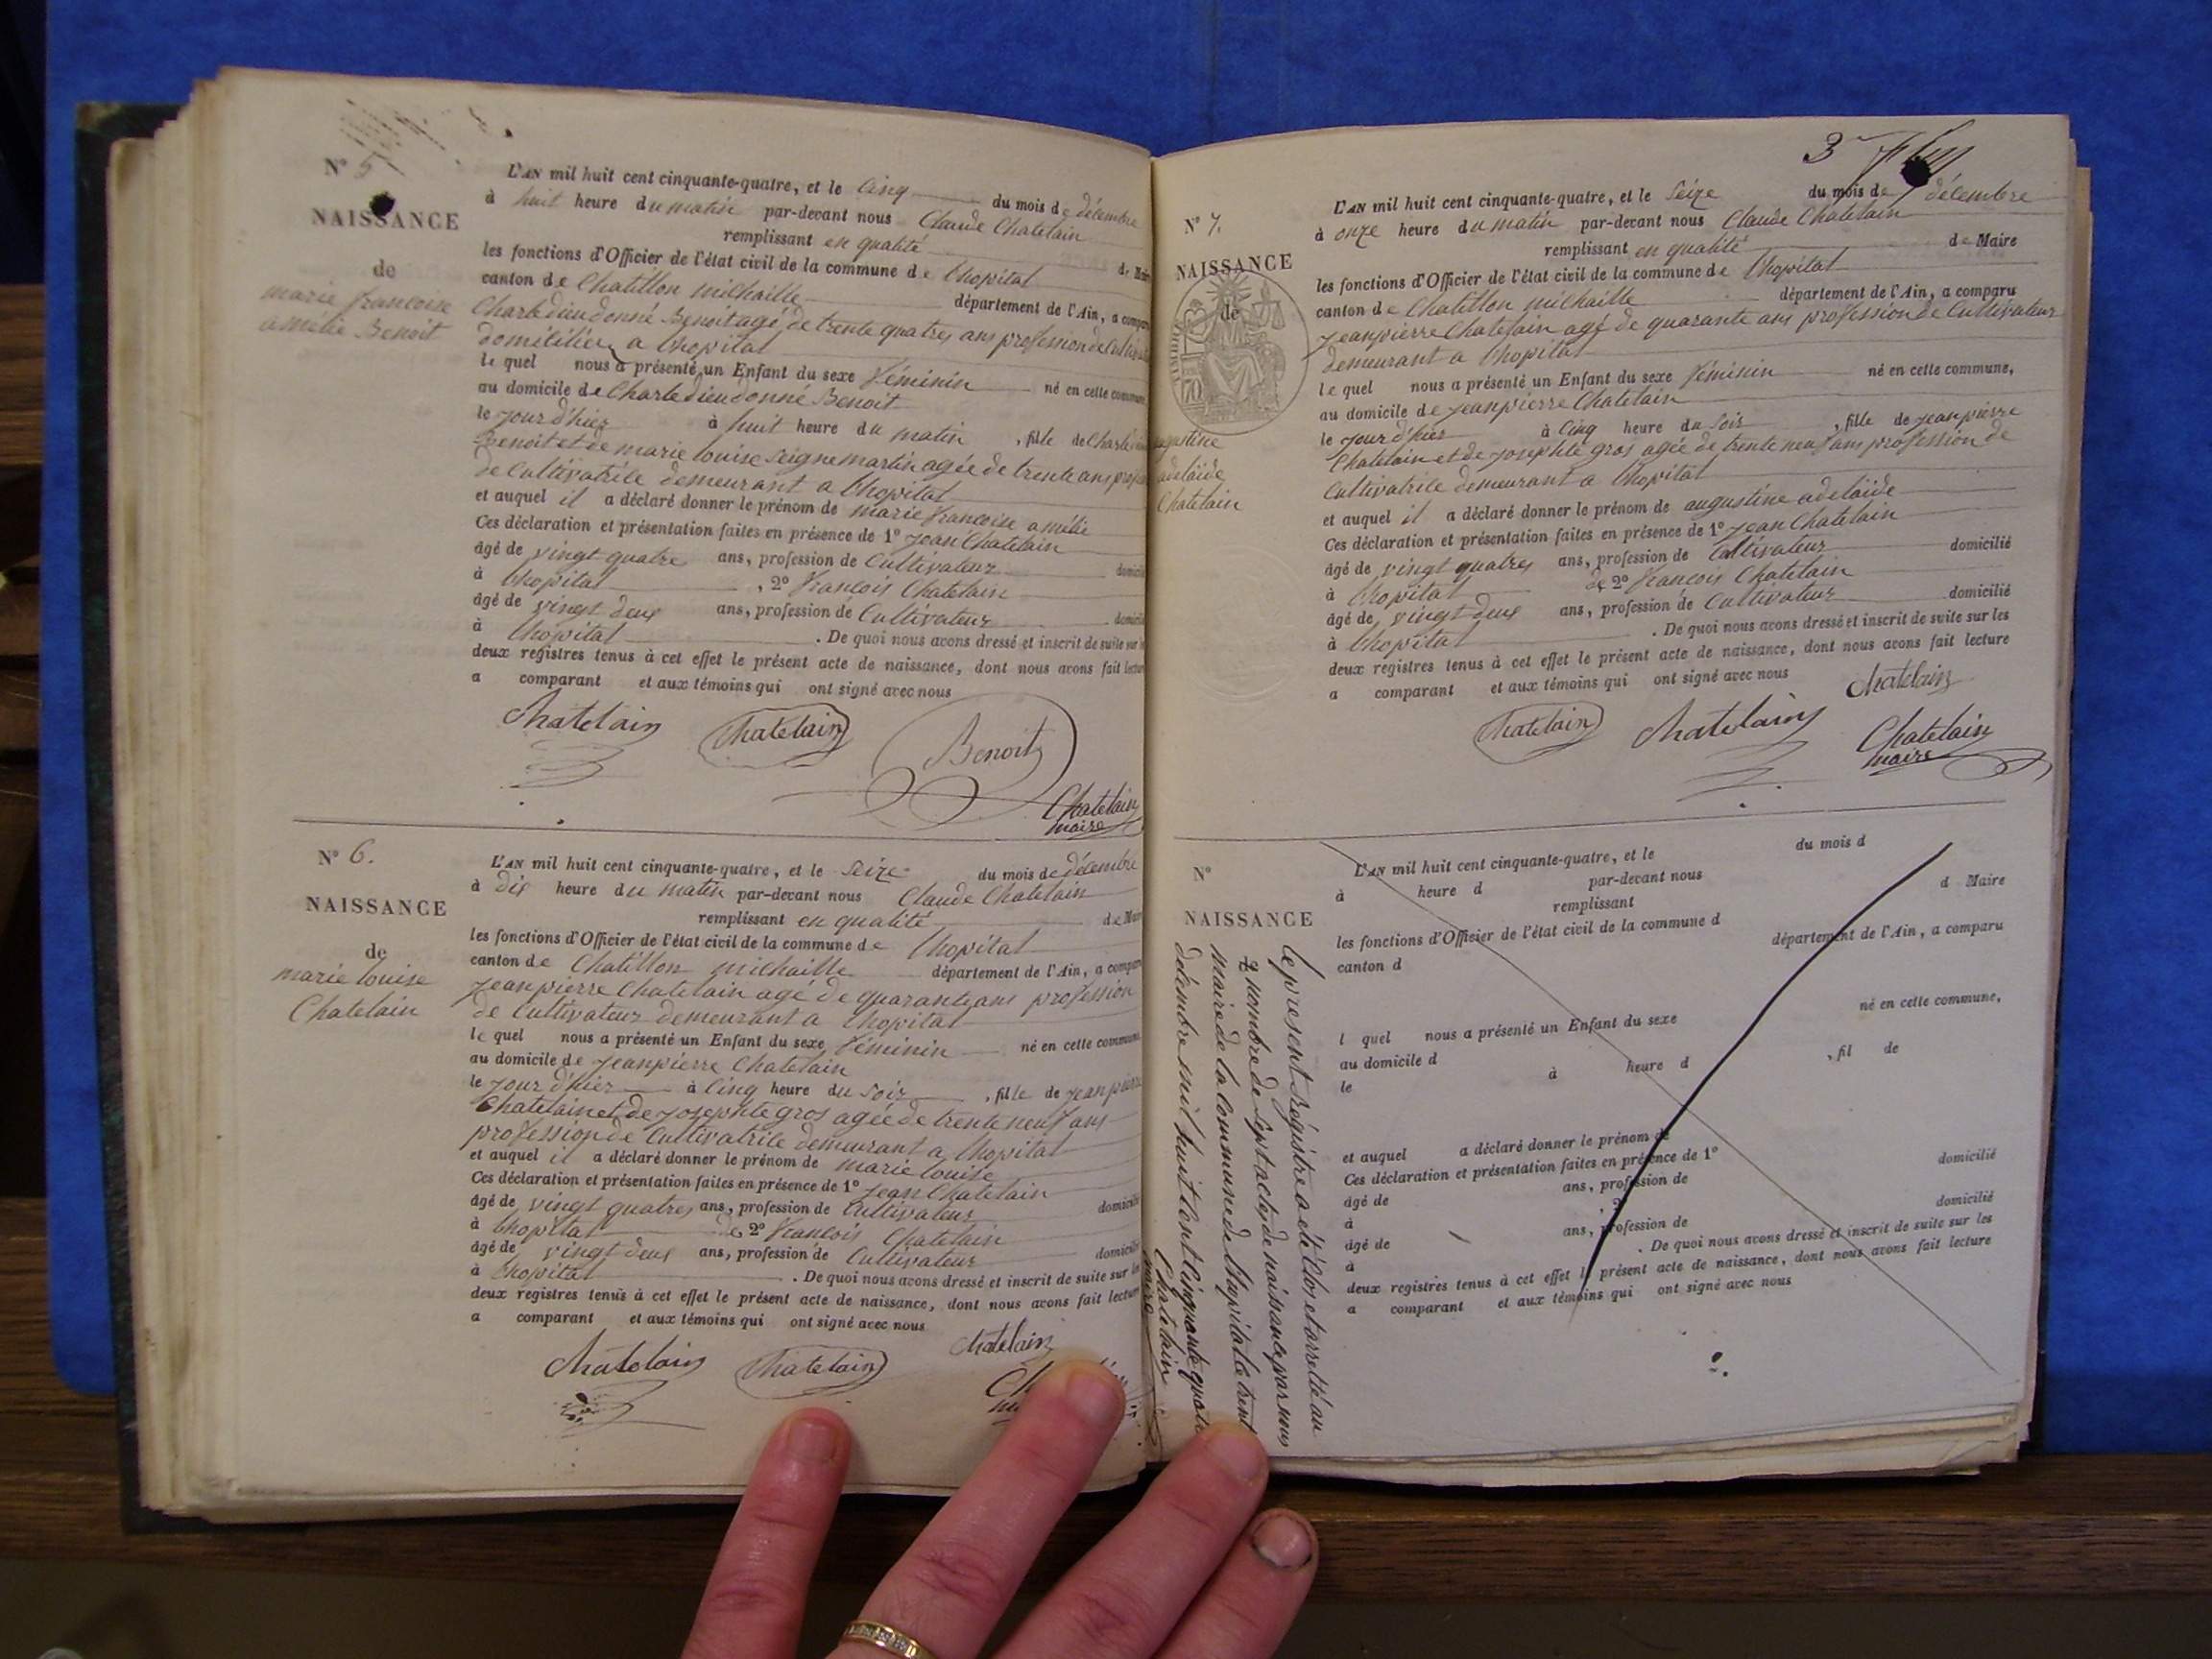 N° 5
NAISSANCE
de
marie francoise
amélie Benoit
L'AN mil huit cent cinquante-quatre, et le Cinq du mois de décembre
à huit heure du matin par-devant nous Claude Chatelain
remplissant en qualité de Maire
les fonctions d'Officier de l'état civil de la commune de lhopital
canton de Chatillon michaille département de l'Ain, a comparu
Charle dieudonné Benoit agé de trente quatres ans profession de Cultiva
domicilier a lhopital
le quel nous a présenté un Enfant du sexe féminin né en cette commune,
au domicile de Charle dieudonné Benoit
le jour d'hier à huit heure du matin , fille de Charle
Benoit et de marie louise Seignemartin agée de trente ans prof
de Cultivatrice demeurant a lhopital
et auquel il a déclaré donner le prénom de marie francoise amélie
Ces déclaration et présentation faites en présence de 1° jean Chatelain
âgé de vingt quatre ans, profession de Cultivateur domicilié
à lhopital , 2° francois Chatelain
âgé de vingt deux ans, profession de Cultivateur domicilié
à lhopital . De quoi nous avons dressé et inscrit de suite sur les
deux registres tenus à cet effet le présent acte de naissance, dont nous avons fait lecture
a comparant et aux témoins qui ont signé avec nous
Chatelain Chatelain Benoit
Chatelain
maire
N° 6.
NAISSANCE
de
marie louise
Chatelain
L'AN mil huit cent cinquante-quatre, et le Seize du mois de décembre
à dix heure du matin par-devant nous Claude Chatelain
remplissant en qualité de Maire
les fonctions d'Officier de l'état civil de la commune de lhopital
canton de Chatillon michaille département de l'Ain, a comparu
jeanpierre Chatelain agé de quarante ans profession
de Cultivateur demeurant a lhopital
le quel nous a présenté un Enfant du sexe féminin né en cette commune,
au domicile de jeanpierre Chatelain
le jour d'hier à Cinq heure du Soir , fille de jeanpierre
Chatelain et de josephte gros agée de trente neuf ans
profession de Cultivatrice demeurant a lhopital
et auquel il a déclaré donner le prénom de marie louise
Ces déclaration et présentation faites en présence de 1° jean Chatelain
âgé de vingt quatres ans, profession de Cultivateur domicilié
à lhopital de 2° francois Chatelain
âgé de vingt deux ans, profession de Cultivateur domicilié
à lhopital . De quoi nous avons dressé et inscrit de suite sur les
deux registres tenus à cet effet le présent acte de naissance, dont nous avons fait lecture
a comparant et aux témoins qui ont signé avec nous
Chatelain Chatelain Chatelain
3
N° 7.
NAISSANCE
de
augustine
adelaïde
Chatelain
L'AN mil huit cent cinquante-quatre, et le Seize du mois de décembre
à onze heure du matin par-devant nous Claude Chatelain
remplissant en qualité de Maire
les fonctions d'Officier de l'état civil de la commune de lhopital
canton de Chatillon michaille département de l'Ain, a comparu
jeanpierre Chatelain agé de quarante ans profession de Cultivateur
demeurant a lhopital
le quel nous a présenté un Enfant du sexe féminin né en cette commune,
au domicile de jeanpierre Chatelain
le jour d'hier à Cinq heure du Soir , fille de jeanpierre
Chatelain et de josephte gros agée de trente neuf ans profession de
Cultivatrice demeurant a lhopital
et auquel il a déclaré donner le prénom de augustine adelaïde
Ces déclaration et présentation faites en présence de 1° jean Chatelain
âgé de vingt quatres ans, profession de Cultivateur domicilié
à lhopital de 2° francois Chatelain
âgé de vingt deux ans, profession de Cultivateur domicilié
à lhopital . De quoi nous avons dressé et inscrit de suite sur les
deux registres tenus à cet effet le présent acte de naissance, dont nous avons fait lecture
a comparant et aux témoins qui ont signé avec nous
Chatelain
Chatelain Chatelain Chatelain
maire
N°
NAISSANCE
Le present régistre a été Clos et arretté au
nombre de Sept actes de naissance par nous
maire de la Commune de lhopital le trent
décembre mil huit Cent Cinquante quatre
Chatelain
maire
L'AN mil huit cent cinquante-quatre, et le du mois d
à heure d par-devant nous
remplissant d Maire
les fonctions d'Officier de l'état civil de la commune d
canton d département de l'Ain, a comparu
l quel nous a présenté un Enfant du sexe né en cette commune,
au domicile d
le à heure d , fil de
et auquel a déclaré donner le prénom de
Ces déclaration et présentation faites en présence de 1°
âgé de ans, profession de domicilié
à , 2°
âgé de ans, profession de domicilié
à . De quoi nous avons dressé et inscrit de suite sur les
deux registres tenus à cet effet le présent acte de naissance, dont nous avons fait lecture
a comparant et aux témoins qui ont signé avec nous